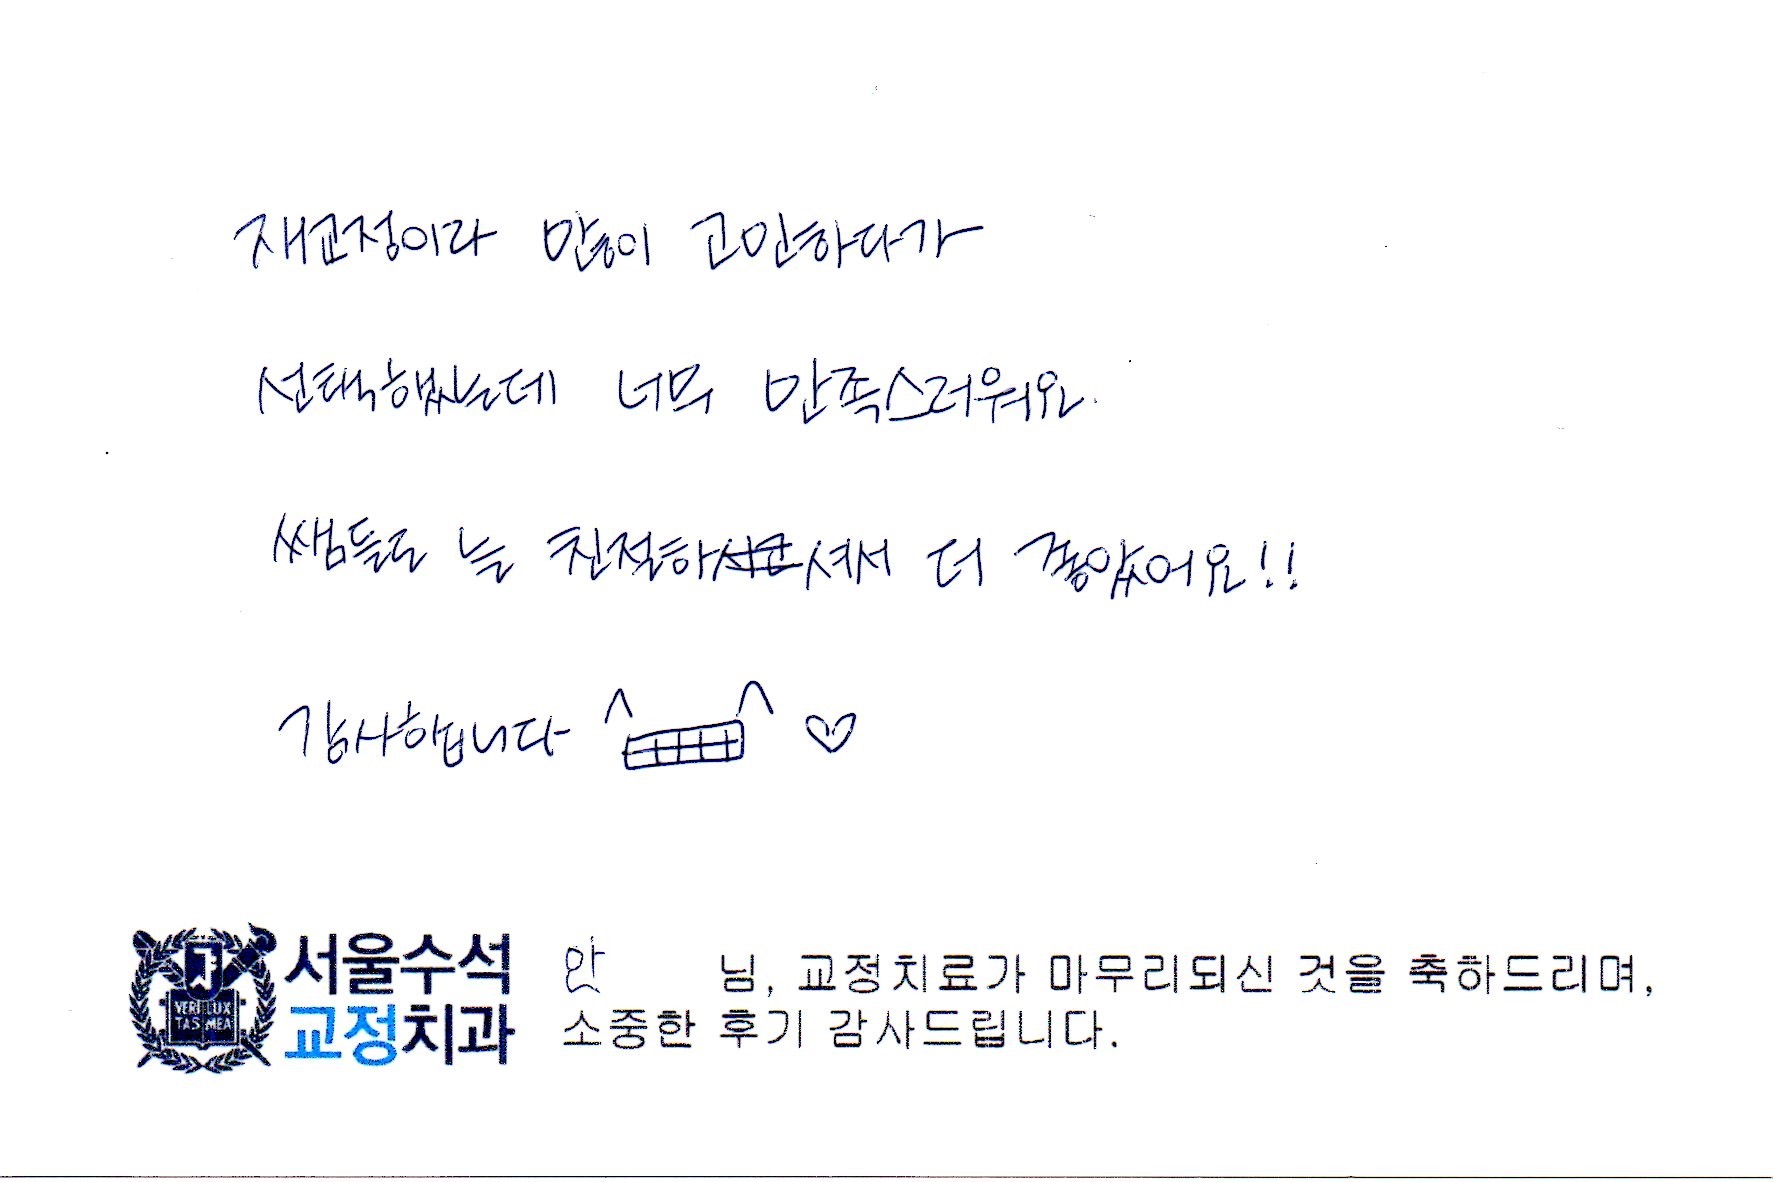 재교정이라 많이 고민하다가
선택했는데 너무 만족스러워요.
쌤들도 늘 친절하셔서 더 좋았어요!!
감사합니다 ♡
서울수석
교정치과
VERI LUX
TAS MEA
안 님, 교정치료가 마무리되신 것을 축하드리며,
소중한 후기 감사드립니다.